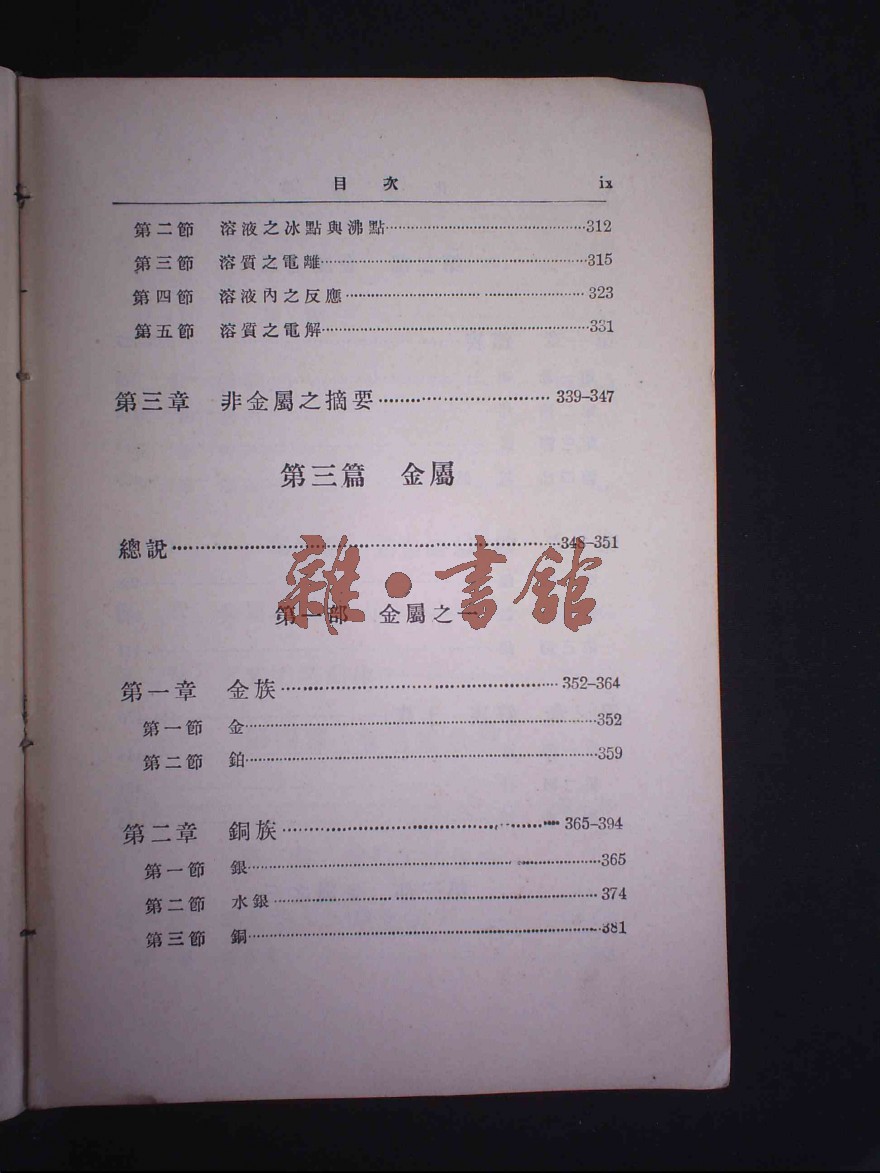 目 次 ix
第二節 溶液之冰點與沸點……312
第三節 溶質之電離……315
第四節 溶液內之反應……323
第五節 溶質之電解……331
第三章 非金屬之摘要……339–347
第三篇 金屬
總說……348–351
雜·書館
第一部 金屬之一
第一章 金族……352–364
第一節 金……352
第二節 鉑……359
第二章 銅族……365–394
第一節 銀……365
第二節 水銀……374
第三節 銅……381